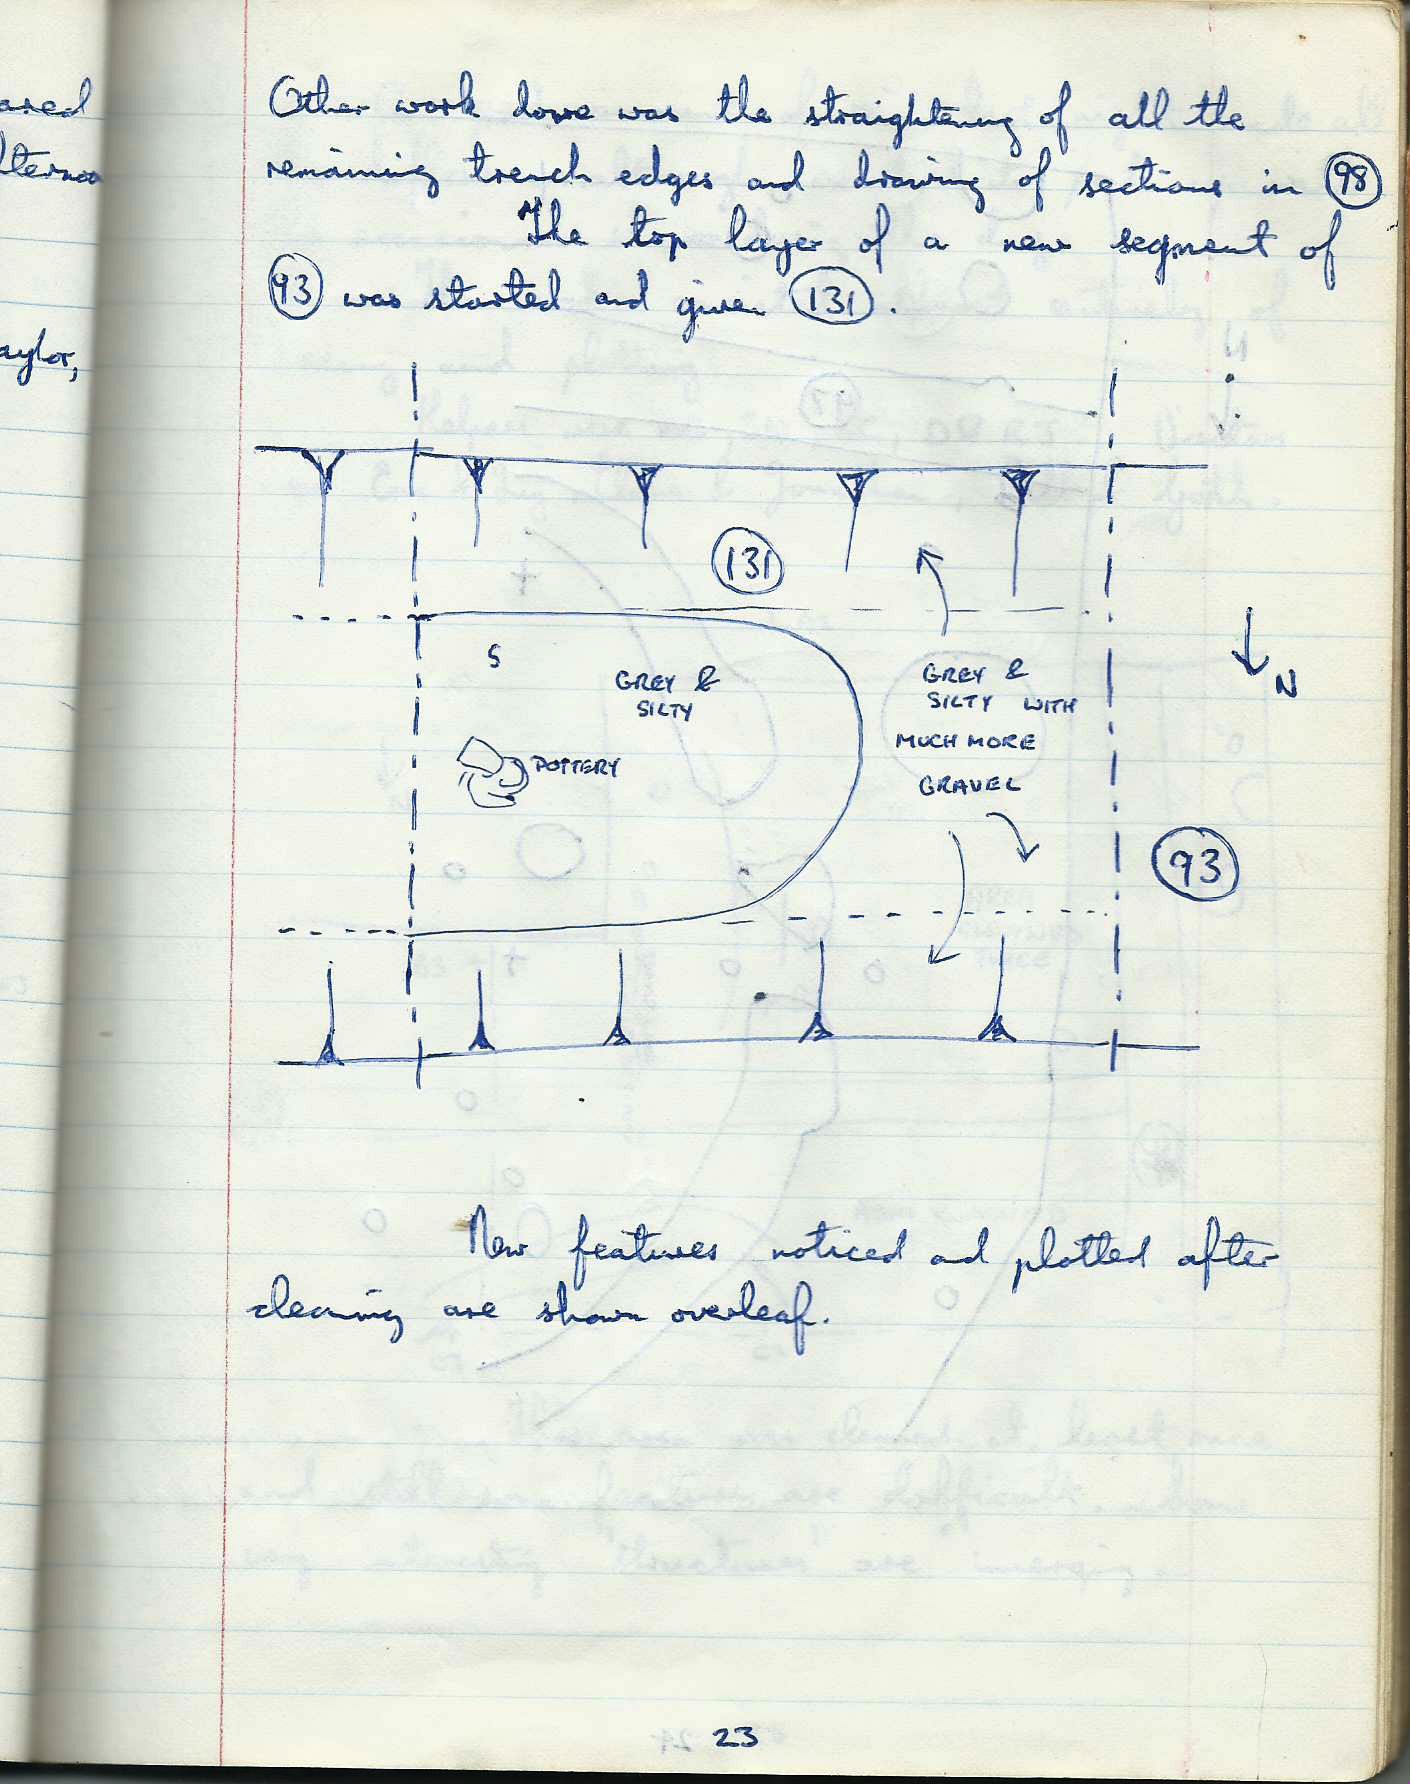 ared
fternoo
aylor,
Other work done was the straightening of all the
remaining trench edges and drawing of sections in 98
The top layer of a new segment of
93 was started and given 131.
131
S
GREY &
SILTY
POTTERY
GREY &
SILTY WITH
MUCH MORE
GRAVEL
N
93
New features noticed and plotted after
cleaning are shown overleaf.
23